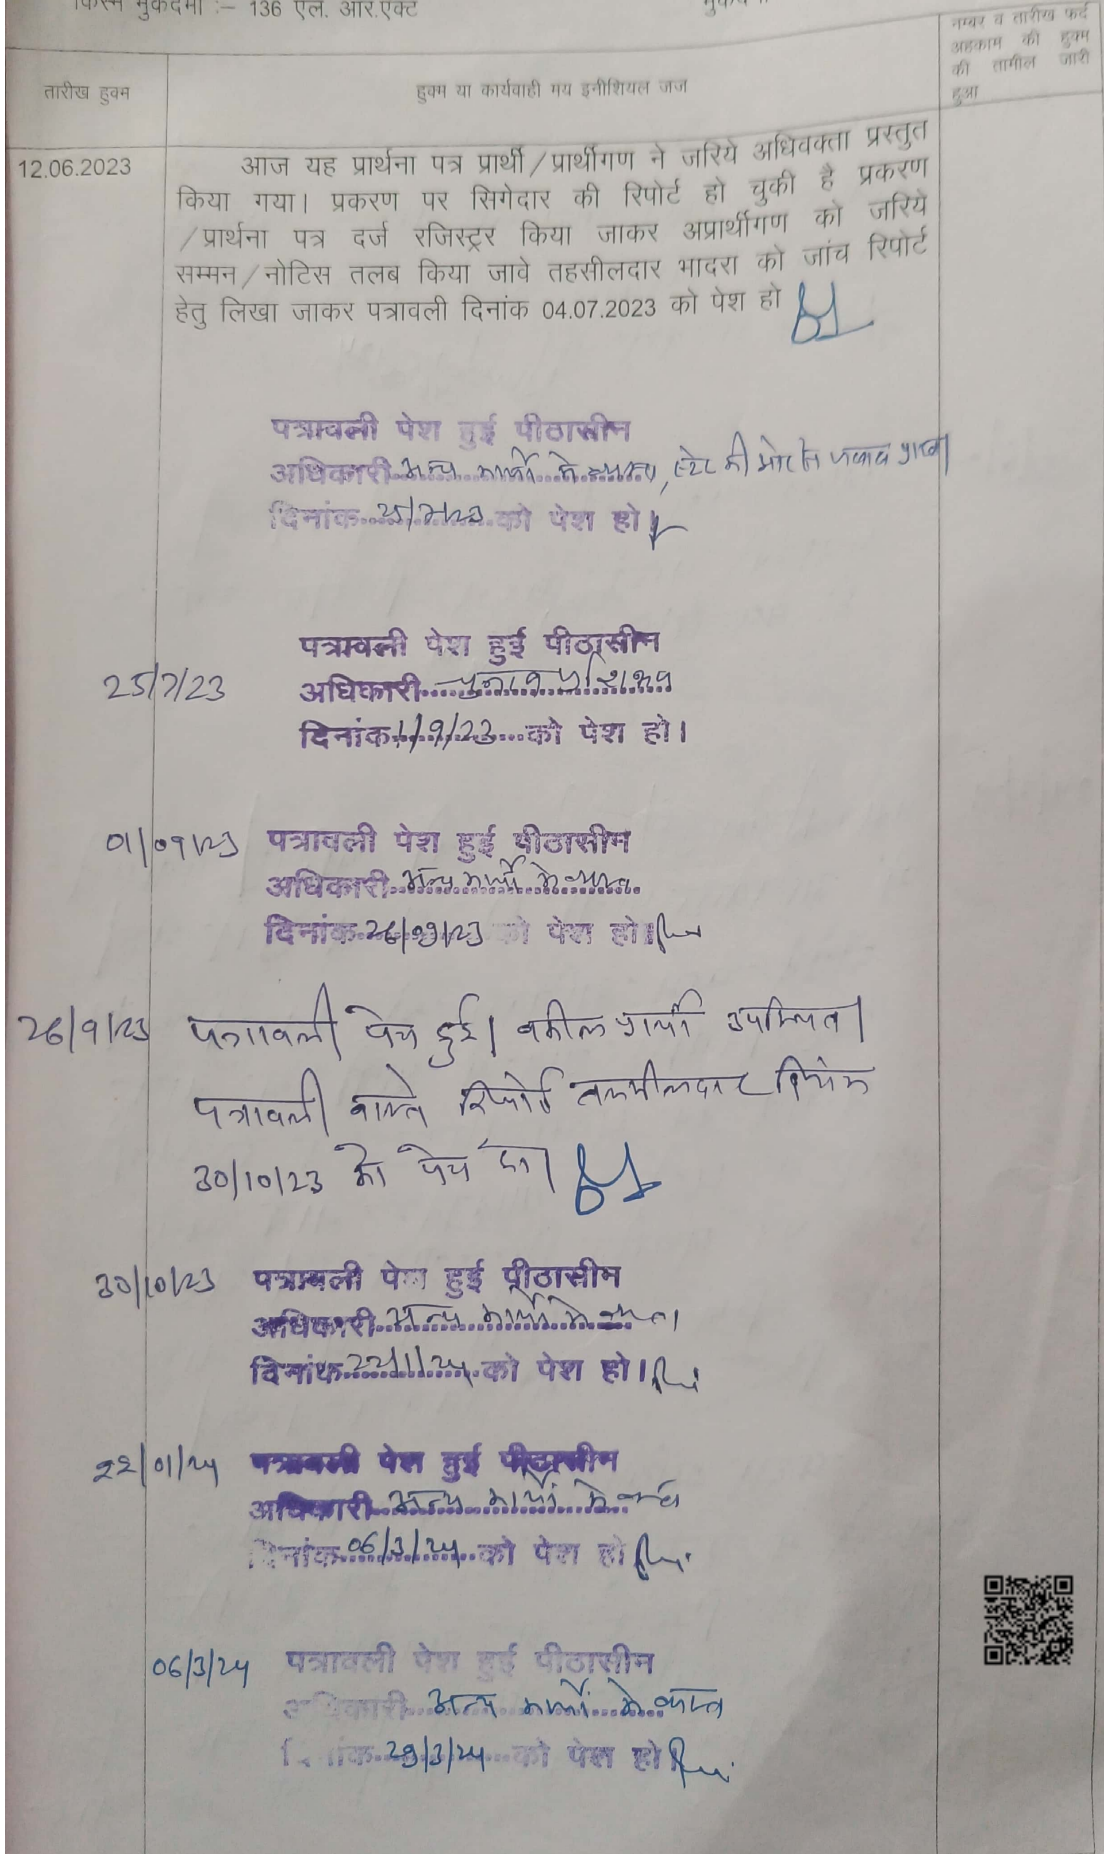 किस्म मुकदमा :– 136 एल. आर.एक्ट
नम्बर व तारीख फर्द
अहकाम की हुक्म
की तामील जारी
हुआ
तारीख हुक्म
हुक्म या कार्यवाही मय इनीशियल जज
12.06.2023
आज यह प्रार्थना पत्र प्रार्थी/प्रार्थीगण ने जरिये अधिवक्ता प्रस्तुत
किया गया। प्रकरण पर सिगेदार की रिपोर्ट हो चुकी है प्रकरण
/प्रार्थना पत्र दर्ज रजिस्ट्रर किया जाकर अप्रार्थीगण को जरिये
सम्मन/नोटिस तलब किया जावे तहसीलदार भादरा को जांच रिपोर्ट
हेतु लिखा जाकर पत्रावली दिनांक 04.07.2023 को पेश हो
पत्रावली पेश हुई पीठासीन
अधिकारी अन्य कार्यो मे व्यस्त, स्टेट की ओर से जवाब प्राप्त
दिनांक 25/7/23 को पेश हो।
25/7/23
पत्रावली पेश हुई पीठासीन
अधिकारी चुनाव प्रशिक्षण
दिनांक 1/9/23 को पेश हो।
01/09/23 पत्रावली पेश हुई पीठासीन
अधिकारी अन्य कार्यो मे व्यस्त
दिनांक 26/09/23 को पेश हो।
26/9/23 पत्रावली पेश हुई। वकील प्रार्थी उपस्थित।
पत्रावली वास्ते रिपोर्ट तहसीलदार दिनांक
30/10/23 को पेश हो।
30/10/23 पत्रावली पेश हुई पीठासीन
अधिकारी अन्य कार्यो मे व्यस्त।
दिनांक 22/1/24 को पेश हो।
22/01/24 पत्रावली पेश हुई पीठासीन
अधिकारी अन्य कार्यो मे व्यस्त
दिनांक 06/3/24 को पेश हो
06/3/24 पत्रावली पेश हुई पीठासीन
अधिकारी अन्य कार्यो मे व्यस्त
दिनांक 29/3/24 को पेश हो